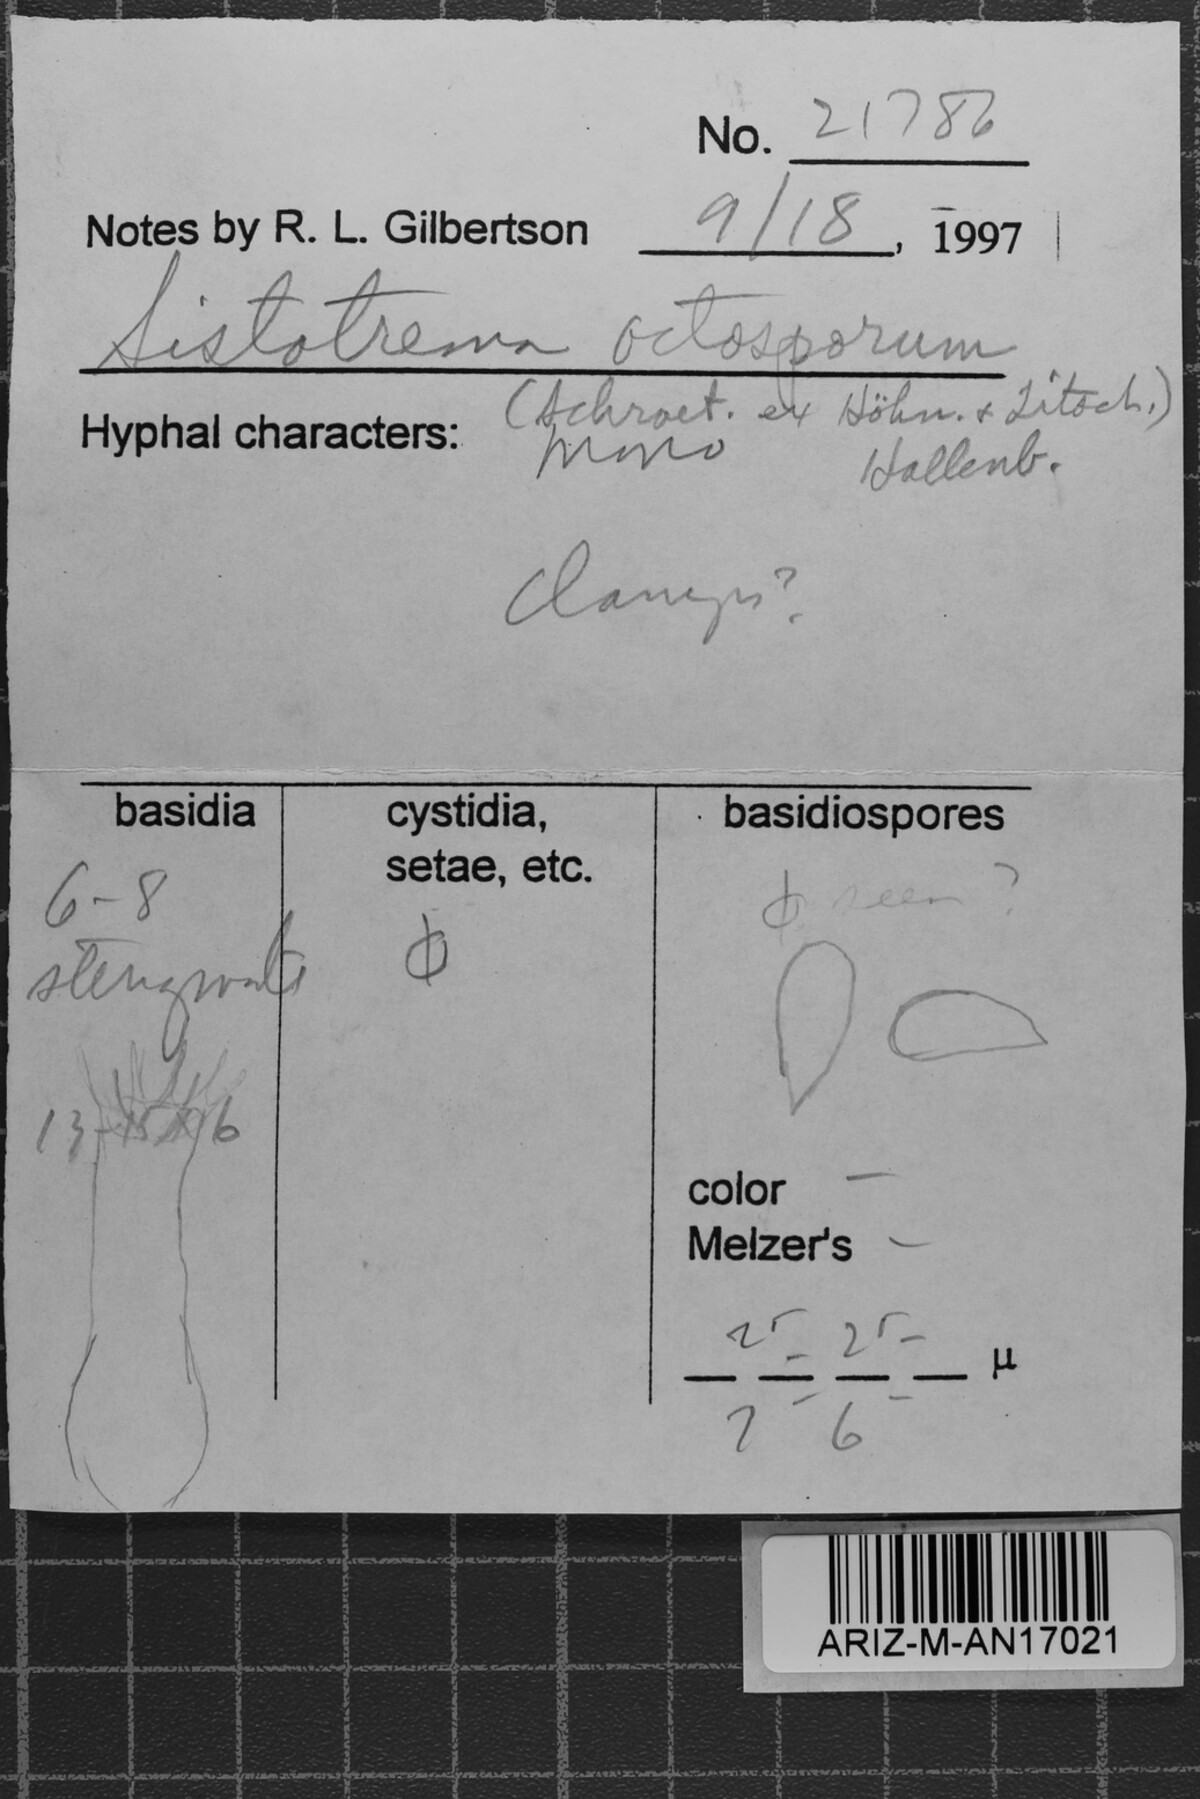 No. 21786
Notes by R. L. Gilbertson 9/18, 1997
Sistotrema octosporum
(Schroet. ex Höhn. & Litsch.)
Hyphal characters: mono Hallenb.
Clamps?
basidia cystidia, setae, etc. basidiospores
6-8 sterigmate
ϕ
ϕ seen ?
13-15 x 6
color —
Melzer's —
25- 25-
_ _ _ _ µ
7 - 6 -
ARIZ-M-AN17021